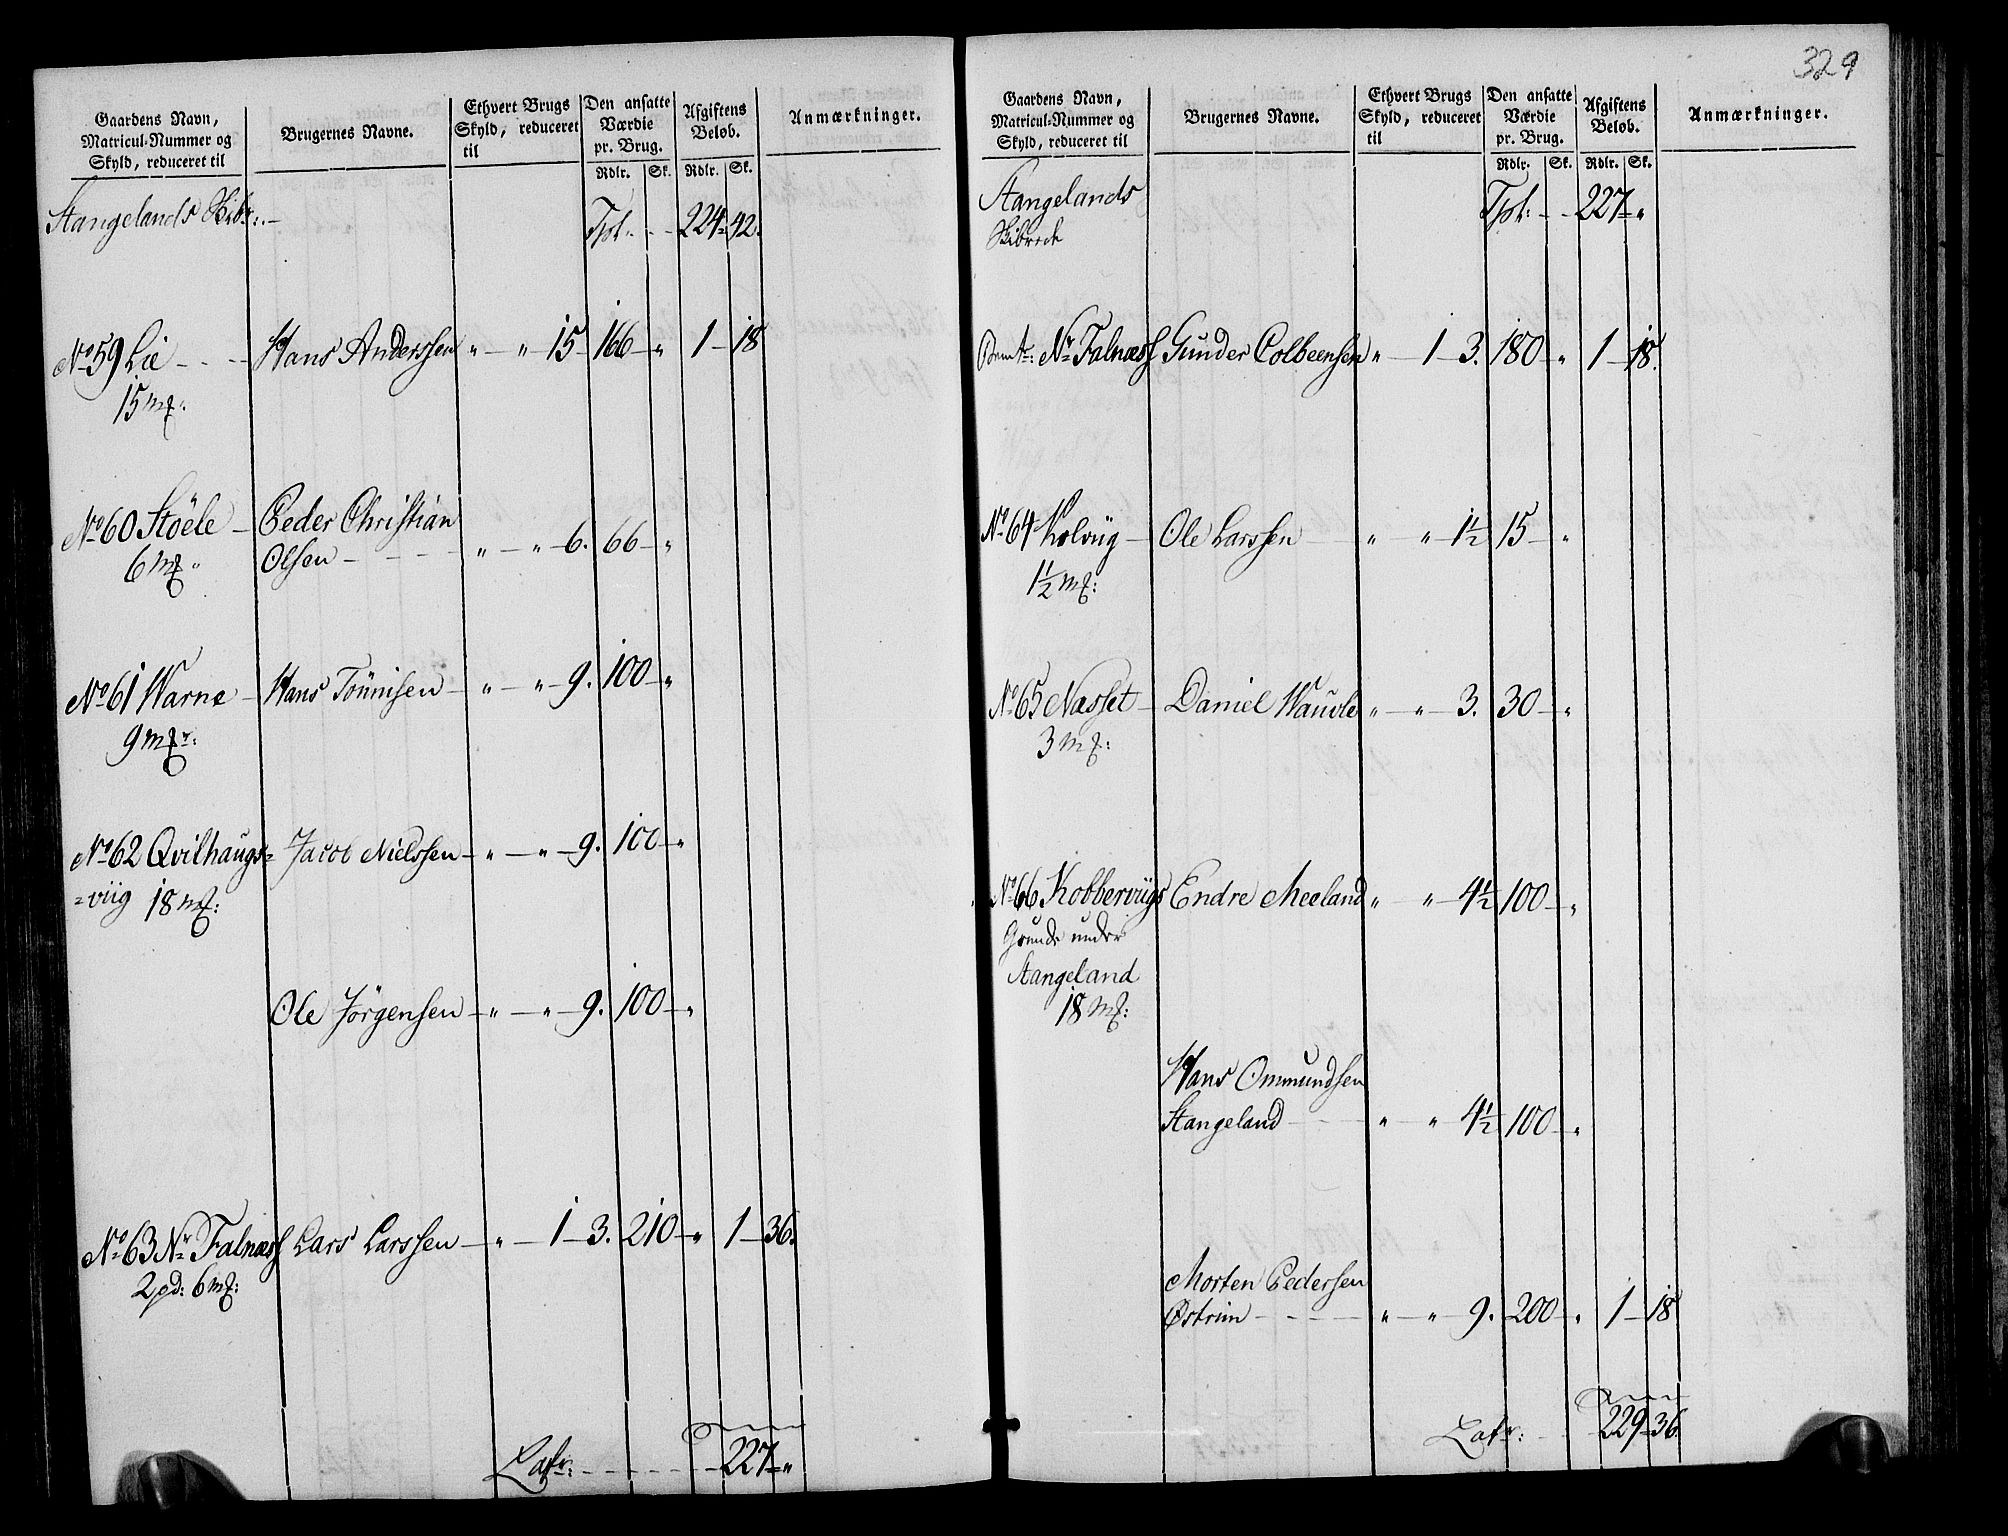 Gaardens Navn, Matricul-Nummer og Skyld, reduceret til | Brugernes Navne. | Ethvert Brugs Skyld, reduceret til | Den ansatte Værdie pr. Brug. Rdlr. Sk. | Afgiftens Beløb. Rdlr. Sk. | Anmærkninger.
Stangelands Skibr: - Tpt: - - 224 - 42.
No 59 Lie - - - Hans Anderssen " - " 15 - 166 - " 1 - 18
15 mf:
No 60 Stöele - Peder Christian
6 mf: Olsen - - - - " - " - 6. 66 - "
No 61 Warne - Hans Tönnisen - " - " - 9. 100 - "
9 mfr:
No 62 Qvilhaugs= Jacob Nielssen - " - " - 9. 100 - "
=viig 18 mf:
Ole Jörgensen - " - " - 9. 100 - "
No 63 Nr Falnæss Lars Larssen - " - 1 - 3. 210 - " 1 - 36.
2 pd: 6 mf:
Latr: - - - - - - 227 - "
329
Gaardens Navn, Matricul-Nummer og Skyld, reduceret til | Brugernes Navne. | Ethvert Brugs Skyld, reduceret til | Den ansatte Værdie pr. Brug. Rdlr. Sk. | Afgiftens Beløb. Rdlr. Sk. | Anmærkninger.
Stangelands Tpt: - - 227 - "
Skibrede
Nr Falnæss Gunder Colbeensen " - 1 - 3. 180 - " 1 - 18.
No 64 Kolviig - Ole Larssen " " - 1½ 15 - "
1½ mf:
No 65 Næsset - Daniel Waule " - " - 3. 30 - "
3 mf:
No 66 Kobberviigs Endre Meeland " " - 4½ 100 - "
Grunde under
Stangeland
18 mf:
Hans Ommundsen
Stangeland - - - " " 4½ 100 - "
Morten Pedersen
Østrim - - - - - " - " - 9. 200 - " 1 - 18
Latr: - - - 229 - 36.